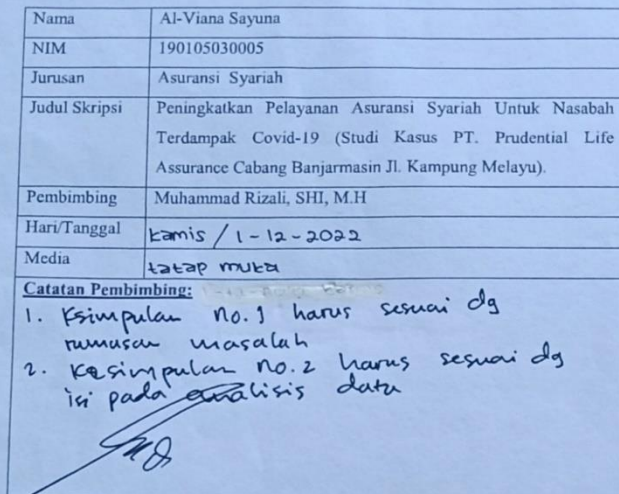 Nama Al-Viana Sayuna
NIM 190105030005
Jurusan Asuransi Syariah
Judul Skripsi Peningkatkan Pelayanan Asuransi Syariah Untuk Nasabah
Terdampak Covid-19 (Studi Kasus PT. Prudential Life
Assurance Cabang Banjarmasin Jl. Kampung Melayu).
Pembimbing Muhammad Rizali, SHI, M.H
Hari/Tanggal Kamis / 1-12-2022
Media tatap muka
Catatan Pembimbing:
1. Ksimpulan no.1 harus sesuai dg
rumusan masalah
2. Kesimpulan no.2 harus sesuai dg
isi pada analisis data